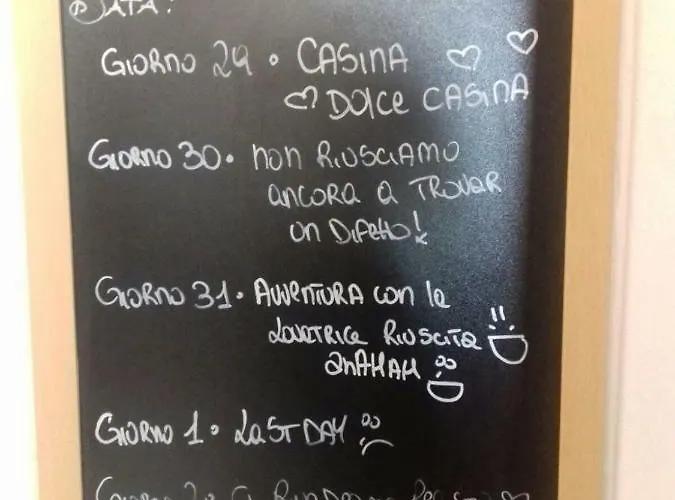 DATA:
GIORNO 29 • CASINA
DOLCE CASINA
GIORNO 30 • NON RIUSCIAMO
ANCORA A TROVAR
UN DIFETTO!
GIORNO 31 • AVVENTURA CON le
LAVATRICE RIUSCITA
AHAHAH
GIORNO 1 • LAST DAY
GIORNO